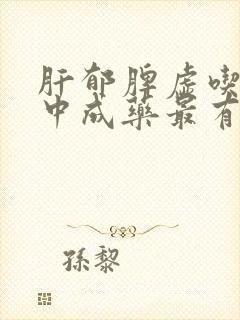 肝郁脾虚喫
中成藥最有
孫黎